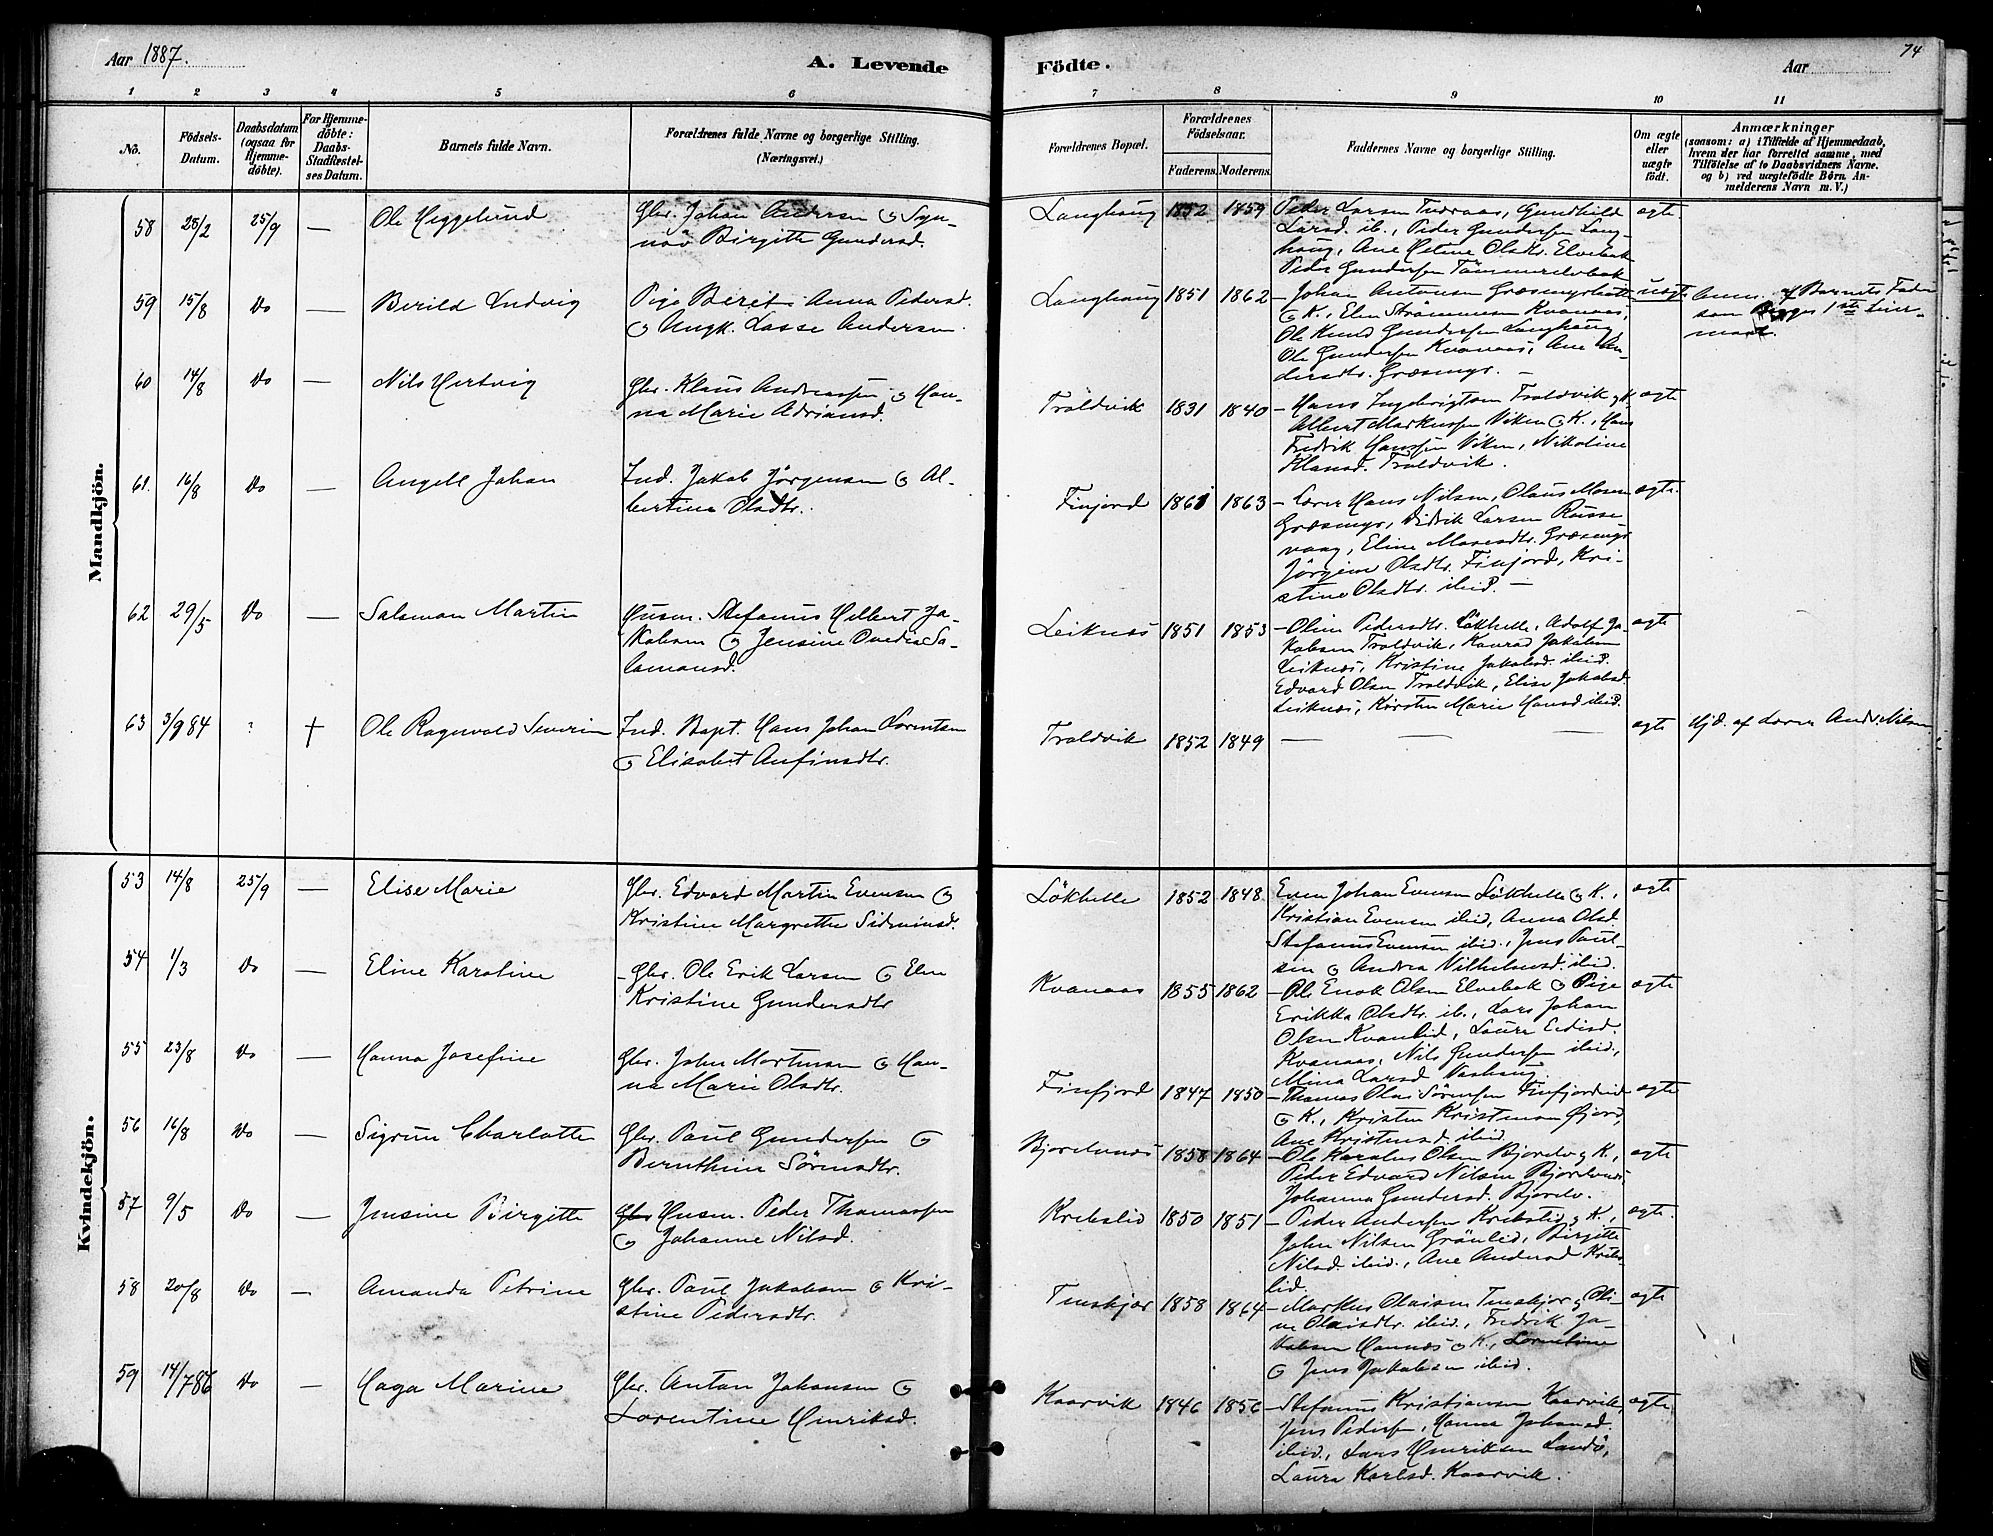 Aar 1887.
A. Levende
Födte.
Aar
74
1 2 3 4 5 6 7 8 9 10 11
No.
Födsels-
Datum.
Daabsdatum
(ogsaa for
Hjemme-
döbte).
For Hjemme-
döbte:
Daabs-
Stadfæstel-
ses Datum.
Barnets fulde Navn.
Forældrenes fulde Navne og borgerlige Stilling.
(Næringsvei.)
Forældrenes Bopæl.
Forældrenes
Födselsaar.
Faderens. Moderens.
Faddernes Navne og borgerlige Stilling.
Om ægte
eller
uægte
födt.
Anmærkninger
(saasom: a) i Tilfælde af Hjemmedaab,
hvem der har forrettet samme, med
Tilföielse af to Daabsvidners Navne.
og b) ved uægtefödte Börn An-
melderens Navn m. V.)
Mandkjön.
58 25/2 25/9 — Ole Heggelund Gbr. Johan Andersen & Syn-
növ Birgitte Gundersd.
Langhaug 1852 1859 Peder Larsen Tudraas, Gundhild ægte
Larsd. ib., Peder Gundersen Lang-
haug, Ane Olsdtr. Elvebak
Peder Gundersen Tömmerelvbak
59 15/8 Do — Berild Ludvig Pige Berit Anna Pedersd.
& Ungk. Lasse Andersen.
Langhaug 1851 1862 — Johan Antonsen Græsmyrbakk uægte Anm. af Barnets Fader
& K., Elen Strömmesen Kvanaas, som 1ste Leier-
Ole Knud Gundersen Langhaug, maal.
Ole Gundersen Kvanaas, Ane An-
dersdtr. Græsmyr. —
60 14/8 Do — Nils Hertvig Gbr. Klaus Andreassen & Han-
na Marie Adriansd.
Troldvik 1831 1840 — Hans Ingebrigtsen Troldvik & K. ægte
Albert Markussen Viken & K., Hans
Fredrik Hanssen Viken, Nikoline
Klausd. Troldvik.
61. 16/8 Do — Angell Johan Ind. Jakob Jörgensen & Al-
bertine Olsdtr.
Finjord 1861 1863 — Lærer Hans Nilsen, Olaus Mosen ægte.
Græsmyr, Didrik Larsen Russe-
vaag, Eline Mosesdtr. Græsmyr
Jörgine Olsdtr. Finjord, Kri-
stine Olsdtr. ibid. —
62 29/5 Do — Salamon Martin Husm. Stefanus Hilbert Ja-
kobsen & Jensine Ovedia Sa-
lamonsd.
Leiknes 1851 1853 — Oline Pedersdtr. Lökhelle, Adolf Ja- ægte
kobsen Troldvik, Konrad Jakobsen
Leiknes, Kristine Jakobsd. ibid.
Edvard Olsen Troldvik, Elise Jakobsd.
Leiknes, Kirsten Marie Hansd. ibid.
63 3/9 84 : † Ole Ragnvald Severin Ind. Bapt. Hans Johan Lorentsen
& Elisabet Anfinsdtr.
Troldvik 1852 1849 — — — ægte Hjd. af Lærer Andr. Nilsen
Kvindekjön.
53 14/8 25/9 — Elise Marie Gbr. Edvard Martin Evensen &
Kristine Margrethe Sidensd.
Lökhelle 1852 1848 Even Johan Evensen Lökhelle & K., ægte
Kristian Evensen ibid, Anna Olsd.
Stefanus Evensen ibid., Jens Paul-
sen & Andrea Vilhelmsd. ibid.
54 1/3 Do — Eline Karoline Gbr. Ole Erik Larsen & Elen
Kristine Gundersdtr
Kvanaas 1855 1862 — Ole Enok Olsen Elvebak & Pige ægte
Erikka Olsdtr. ib., Lars Johan
Olsen Kvanlid, Laura Eidisd.
Kvanaas, Nils Gundersen ibid,
Mina Larsd. Vashaug.
55 23/8 Do — Hanna Josefine Gbr. John Mortensen & Han-
na Marie Olsdtr.
Finfjord 1847 1850 — Thomas Olai Sörensen Finfjordeid ægte
& K., Kristen Kristensen Gjord,
Ane Kristensd. ibid.
56 16/8 Do — Sigrun Charlotte Gbr. Paul Gundersen &
Bernthine Sörensdtr.
Bjorelvnes 1858 1864 — Ole Karolus Olsen Bjorelv & K., ægte
Peder Edvard Nilsen Bjorelvnes
Johanna Gundersd. Bjorelv.
57 9/5 Do — Jensine Birgitte Gbr Husm. Peder Thomassen
& Johanne Nilsd.
Krebslid 1850 1851 — Peder Andersen Krebslid & K., ægte.
John Nilsen Grönlid, Birgitte
Nilsd. ibid., Ane Andersd Krebs-
lid.
58 20/8 Do — Amanda Petrine Gbr. Paul Jakobsen & Kri-
stine Pedersdtr.
Finskjær 1858 1864 — Markus Olaisen Finskjær, Oli- ægte
ne Olaisdtr. ibid., Fredrik Ja-
kobsen Hannæs & K., Lornetine
& Jens Jakobsen ibid.
59 14/7 86 Do — Haga Marine Gbr. Antan Johansen &
Lorentine Henriksd.
Kaarvik 1846 1856 — Stefanus Kristiansen Kaarvik, ægte
Jens Peders., Hanna Johansd.
ibid., Lars Henriksen Sandö,
Laura Karlsd. Kaarvik.